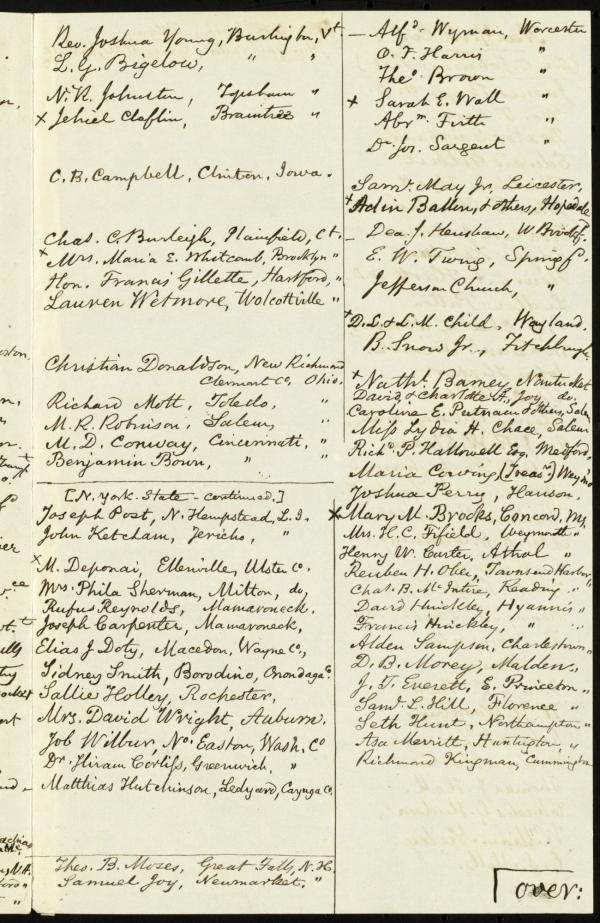 Rev. Joshua Young, Burlington, Vt
L. G. Bigelow, " "
N. R. Johnston, Topsham "
x Jehiel Claflin, Braintree "
C. B. Campbell, Clinton, Iowa.
Chas. C. Burleigh, Plainfield, Ct.
x Mrs. Maria E. Whitcomb, Brooklyn "
Hon. Francis Gillette, Hartford, "
Lauren Wetmore, Wolcottville "
Christian Donaldson, New Richmond
Clermont Co, Ohio.
Richard Mott, Toledo, "
M. R. Robinson, Salem, "
M. D. Conway, Cincinnati, "
Benjamin Bown, " "
[N. York State - continued.]
Joseph Post, N. Hempstead, L. I.
John Ketcham, Jericho, "
x M. Deponai, Ellenville, Ulster Co.
Mrs. Phila Sherman, Milton, do,
Rufus Reynolds, Mamaroneck.
Joseph Carpenter, Mamaroneck,
Elias J. Doty, Macedon, Wayne Co,
Sidney Smith, Borodino, Onondaga Co.
Sallie Holley, Rochester,
Mrs. David Wright, Auburn.
Job Wilbur, No. Easton, Wash. Co
Dr. Hiram Corliss, Greenwich, "
Matthias Hutchinson, Ledyard, Cayuga Co.
Theo. B. Moses, Great Falls, N. H.
Samuel Joy, Newmarket. "
- Alfd. Wyman, Worcester
O. F. Harris "
Theo. Brown "
x Sarah E. Wall "
Abrm. Firth "
Dr. Jos. Sargent "
Saml. May Jr, Leicester,
x Adin Ballou, & others, Hopedale
- Dea. J. Henshaw, W Brookf.
E. W. Twing, Springf.
Jefferson Church, "
x D. L. & L. M. Child, Wayland.
B. Snow Jr., Fitchburgh.
x Nathl. Barney, Nantucket
David & Charlotte A. Joy, do.
Caroline E. Putnam & others, Salem
Miss Lydia H. Chace, Salem
Richd. P. Hallowell Esq. Medford,
Maria Cowing, (Treasr.) Weym'o
Joshua Perry, Hanson.
x Mary M. Brooks, Concord, Ms
Mrs. H. C. Fifield, Weymouth "
Henry W. Carter, Athol "
Reuben H. Ober, Townsend Harbor
Chas. B. McIntire, Reading "
David Hinckley, Hyannis "
Francis Hinckley, " "
Alden Sampson, Charlestown "
D. B. Morey, Malden "
J. T. Everett, E. Princeton "
Saml. L. Hill, Florence "
Seth Hunt, Northampton "
Asa Merritt, Huntington, "
Richmond Kingman, Cummington
over: